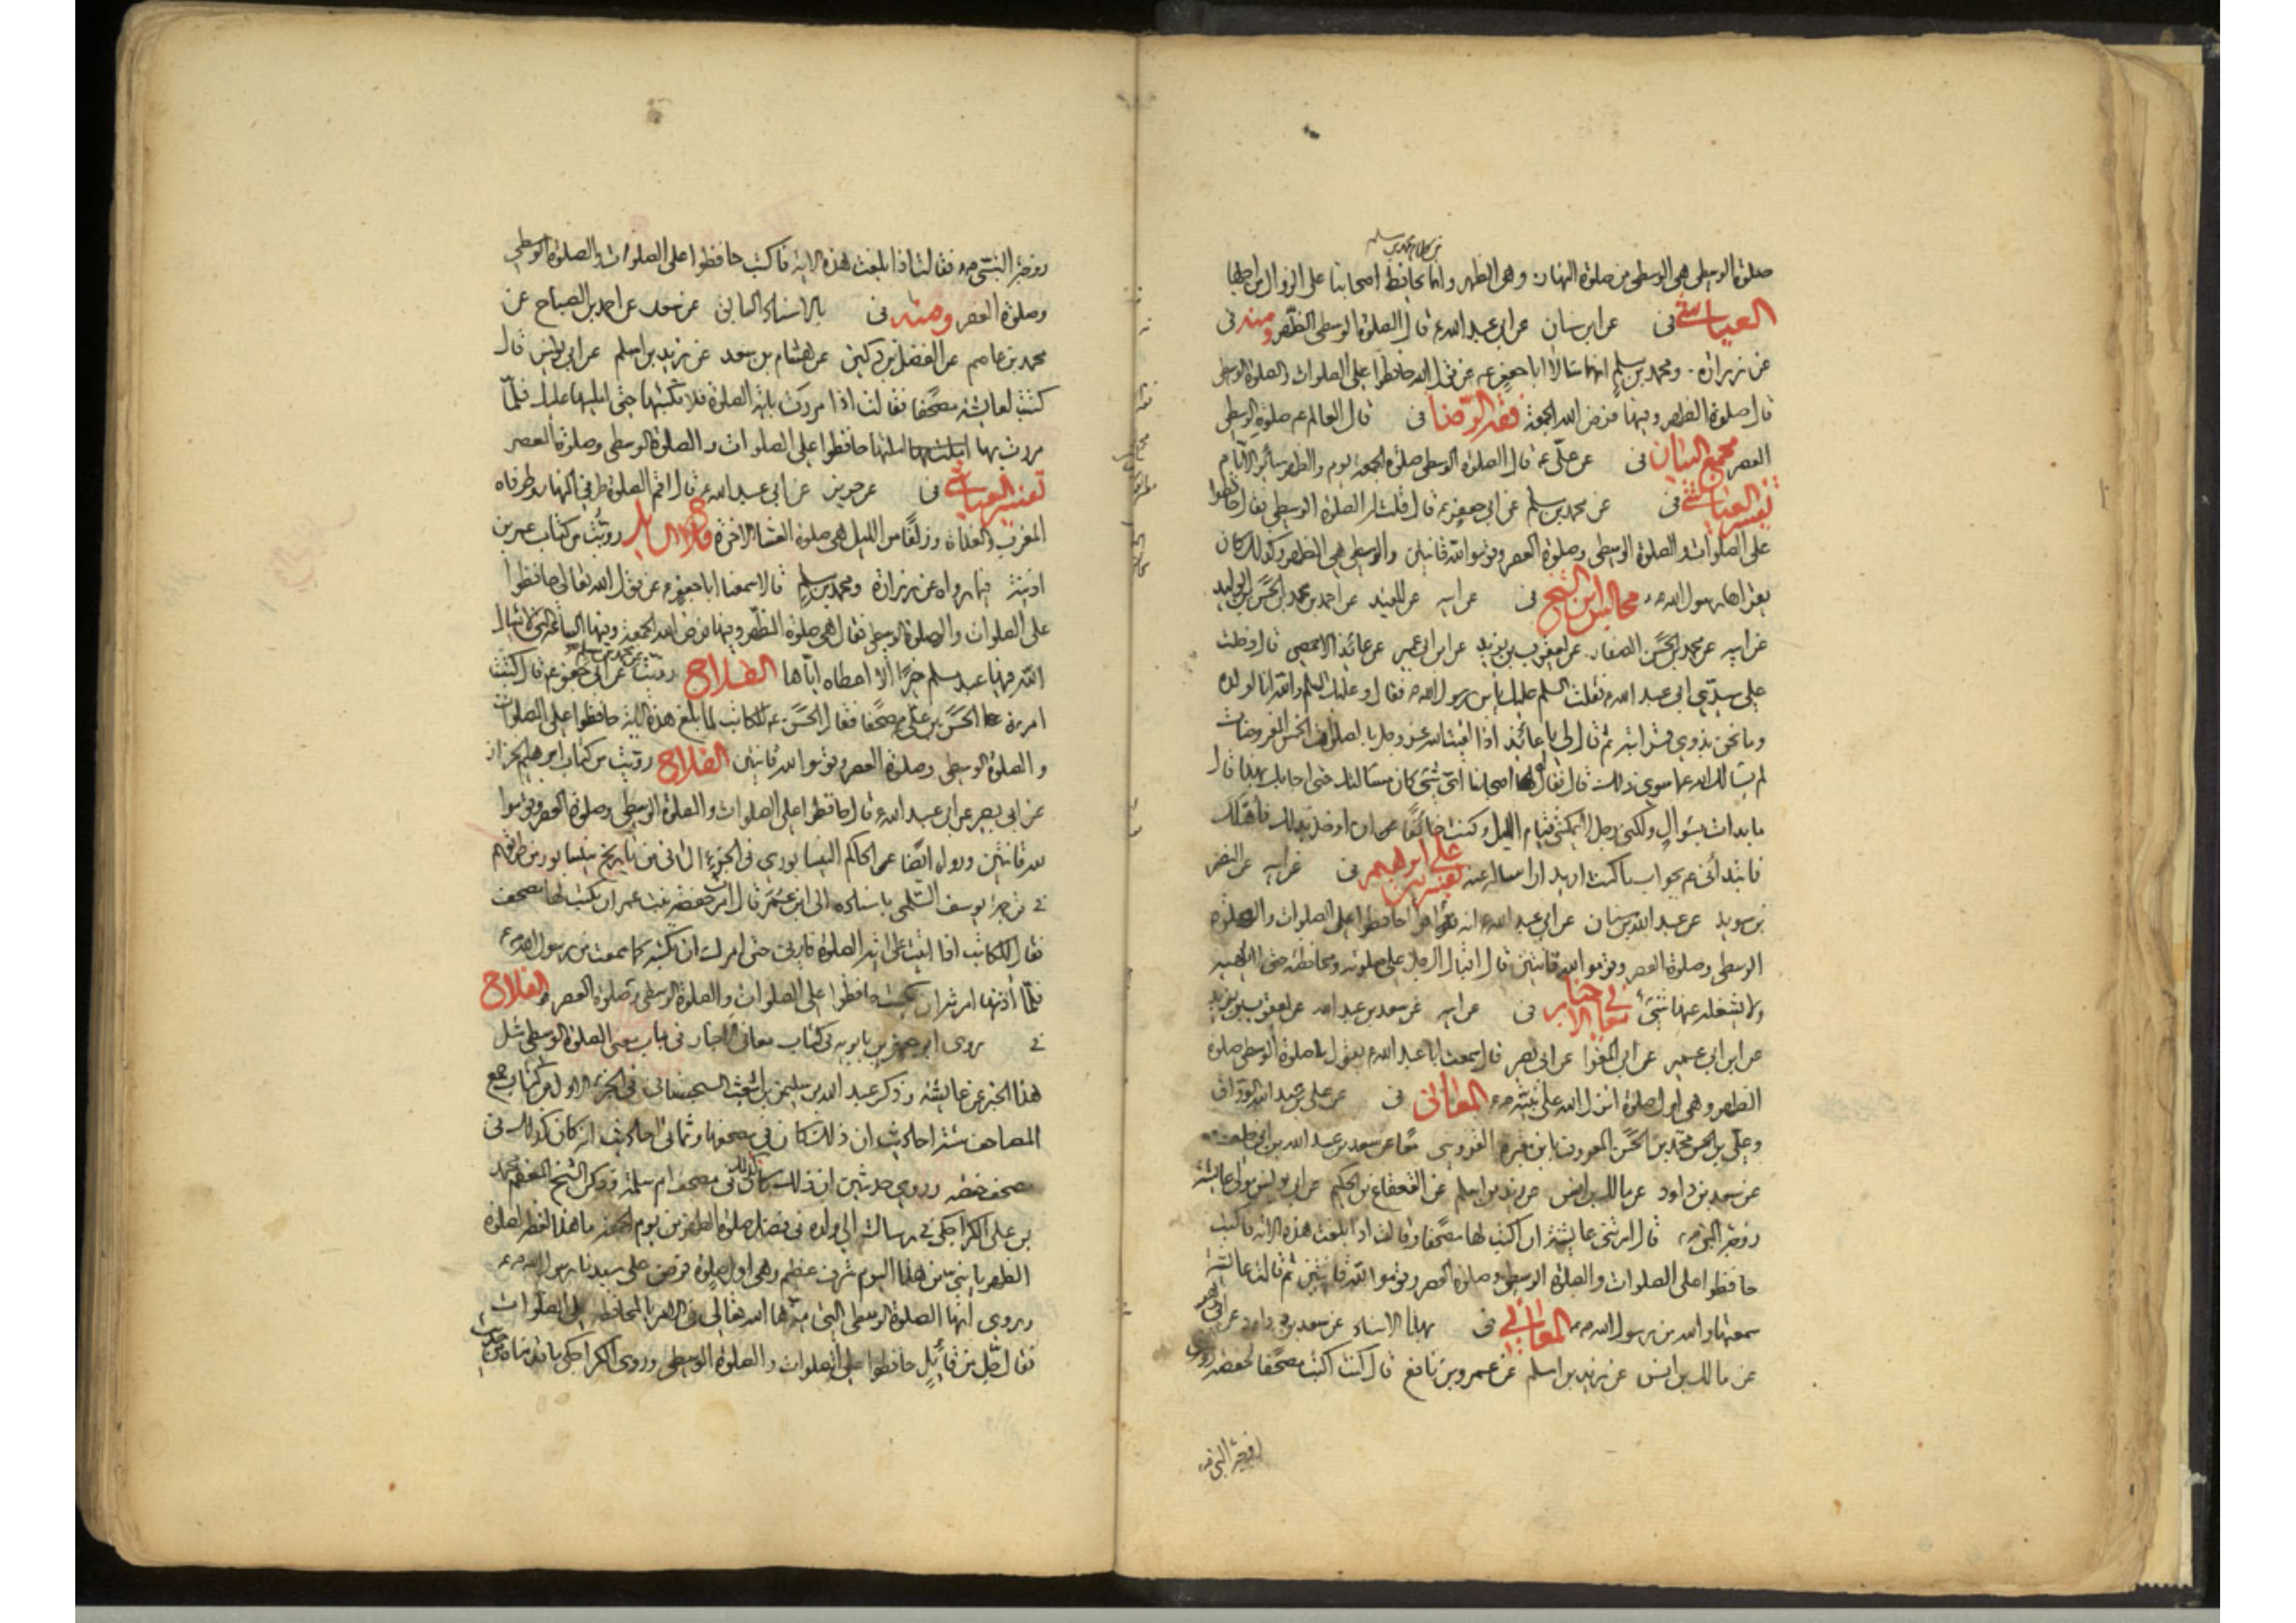 صلوة الوسطى هى الوسطى من صلوة النهار وهى الظهر وانما يحافظ اصحابنا على الزوال من اجلها
العياشى فى عن ابن سنان عن ابى عبد الله ع قال الصلوة الوسطى الظهر ومنه فى
عن زرارة ومحمد بن مسلم انهما سالا ابا جعفر ع عن قول الله حافظوا على الصلوات والصلوة الوسطى
قال صلوة الظهر وفيها فرض الله الجمعة فقه الرضا فى قال العالم ع صلوة الوسطى
العصر مجمع البيان فى عن على ع قال الصلوة الوسطى صلوة الجمعة يوم والظهر سائر الايام
تفسير العياشى فى عن محمد بن مسلم عن ابى جعفر ع قال قلت له الصلوة الوسطى فقال حافظوا
على الصلوات والصلوة الوسطى وصلوة العصر وقوموا لله قانتين والوسطى هى الظهر وكذلك كان
يقراها رسول الله ص مجالس ابن الشيخ فى عن ابيه عن المفيد عن احمد بن محمد بن الحسن بن الوليد
عن ابيه عن محمد بن الحسن الصفار عن يعقوب بن يزيد عن ابن ابى عمير عن عائذ الاحمسى قال دخلت
على سيدى ابى عبد الله ع فقلت السلم عليك يا بن رسول الله ص فقال وعليك السلم والله انا لولده
وما نحن بذوى قرابته ثم قال لى يا عائذ اذا لقيت الله عز وجل بالصلوات الخمس المفروضات
لم يسالك الله عما سوى ذلك قال فقال اصحابنا اى شئ كان مسالتك حتى اجابك بهذا قال
ما بدات بسؤال ولكنى رجل لا يمكننى قيام الليل وكنت خائفا من ان اوخذ بذلك فاهلك
فابتدانى ع بجواب ما كنت اريد ان اساله عنه تفسير على بن ابراهيم فى عن ابيه عن النضر
بن سويد عن عبد الله بن سنان عن ابى عبد الله ع انه قرا حافظوا على الصلوات والصلوة
الوسطى وصلوة العصر وقوموا لله قانتين قال اقبال الرجل على صلوته ومحافظته حتى لا يلهيه
ولا يشغله عنها شئ معانى الاخبار فى عن ابيه عن سعد بن عبد الله عن يعقوب بن يزيد
عن ابن ابى عمير عن ابى المغرا عن ابى بصير قال سمعت ابا عبد الله ع يقول صلوة الوسطى صلوة
الظهر وهى اول صلوة انزل الله على نبيه ص المعانى فى عن على بن عبد الله الوراق
وعلى بن محمد بن الحسن المعروف بابن مقبره القزوينى معا عن سعد بن عبد الله بن ابى خلف
عن سعد بن داود عن مالك بن انس عن زيد بن اسلم عن القعقاع بن الحكيم عن ابى يونس مولى عايشة
زوجة النبى ص قال امرتنى عايشة ان اكتب لها مصحفا وقالت اذا بلغت هذه الاية فاكتب
حافظوا على الصلوات والصلوة الوسطى وصلوة العصر وقوموا لله قانتين ثم قالت عائشة
سمعتها والله من رسول الله ص المعانى فى بهذا الاسناد عن سعد بن داود عن ابى زهير
عن مالك بن انس عن زيد بن اسلم عن عمرو بن نافع قال كنت اكتب مصحفا لحفصة زوجة
زوجة النبى ص
زوجة النبى ص فقالت اذا بلغت هذه الاية فاكتب حافظوا على الصلوات والصلوة الوسطى
وصلوة العصر ومنه فى بالاسناد الثانى عن سعد عن احمد بن الصباح عن
محمد بن عاصم عن الفضل بن دكين عن هشام بن سعد عن زيد بن اسلم عن ابى يونس قال
كتبت لعايشة مصحفا فقالت اذا مررت باية الصلوة فلا تكتبها حتى امليها عليك فلما
مررت بها املتها حافظوا على الصلوات والصلوة الوسطى وصلوة العصر
تفسير العياشى فى عن حريز عن ابى عبد الله ع قال اقم الصلوة طرفى النهار وطرفاه
المغرب والغداة وزلفا من الليل هى صلوة العشاء الاخرة فلاح السايل رويت من كتاب عمر بن
اذينة فيما رواه عن زرارة ومحمد بن مسلم قالا سمعنا ابا جعفر ع عن قول الله تعالى حافظوا
على الصلوات والصلوة الوسطى فقال هى صلوة الظهر وفيها فرض الله الجمعة وفيها الساعة التى لا يسال
الله فيها عبد مسلم خيرا الا اعطاه اياها الفلاح رويت عن محمد بن مسلم عن ابى جعفر ع قال كتبت
امرءة الحسن بن على ع مصحفا فقال الحسن ع للكاتب لما بلغ هذه الاية حافظوا على الصلوات
والصلوة الوسطى وصلوة العصر وقوموا لله قانتين الفلاح رويت من كتاب ابرهيم الخزاز
عن ابى بصير عن ابى عبد الله ع قال حافظوا على الصلوات والصلوة الوسطى وصلوة العصر وقوموا
لله قانتين ورواه ايضا عن الحاكم النيسابورى فى الجزء الثانى من تاريخ نيسابور من طريقهم
فى ترجمة يوسف السلمى باسناده الى ابن عمر قال امرت حفصة بنت عمر ان يكتب لها مصحف
فقال للكاتب اذا اتيت على اية الصلوة فارنى حتى امرك ان تكتبه كما سمعت من رسول الله ص
فلما اذنها امرته ان يكتب حافظوا على الصلوات والصلوة الوسطى وصلوة العصر الفلاح
فى روى ابو جعفر بن بابويه فى كتاب معانى الاخبار فى باب معنى الصلوة الوسطى مثل
هذا الخبر عن عائشة وذكر عبد الله بن سليمن بن اشعث السجستانى فى الجزء الاول من كتاب جمع
المصاحف ستة احاديث ان ذلك كان فى مصحفها وثمانى احاديث انه كان كذلك فى
مصحف حفصة وروى حديثين ان ذلك كان كذلك فى مصحف ام سلمة وذكر الشيخ المعظم محمد
بن على الكراجكى فى رسالته الى ولده فى فضل صلوة الظهر من يوم الجمعة ما هذا لفظه لصلوة
الظهر يا بنى من هذا اليوم شرف عظيم وهى اول صلوة فرضت على سيدنا رسول الله ص
وروى انها الصلوة الوسطى التى ميزها الله تعالى فى الامر بالمحافظة على الصلوات
فقال جل من قائل حافظوا على الصلوات والصلوة الوسطى وروى الكراجكى باقى ما